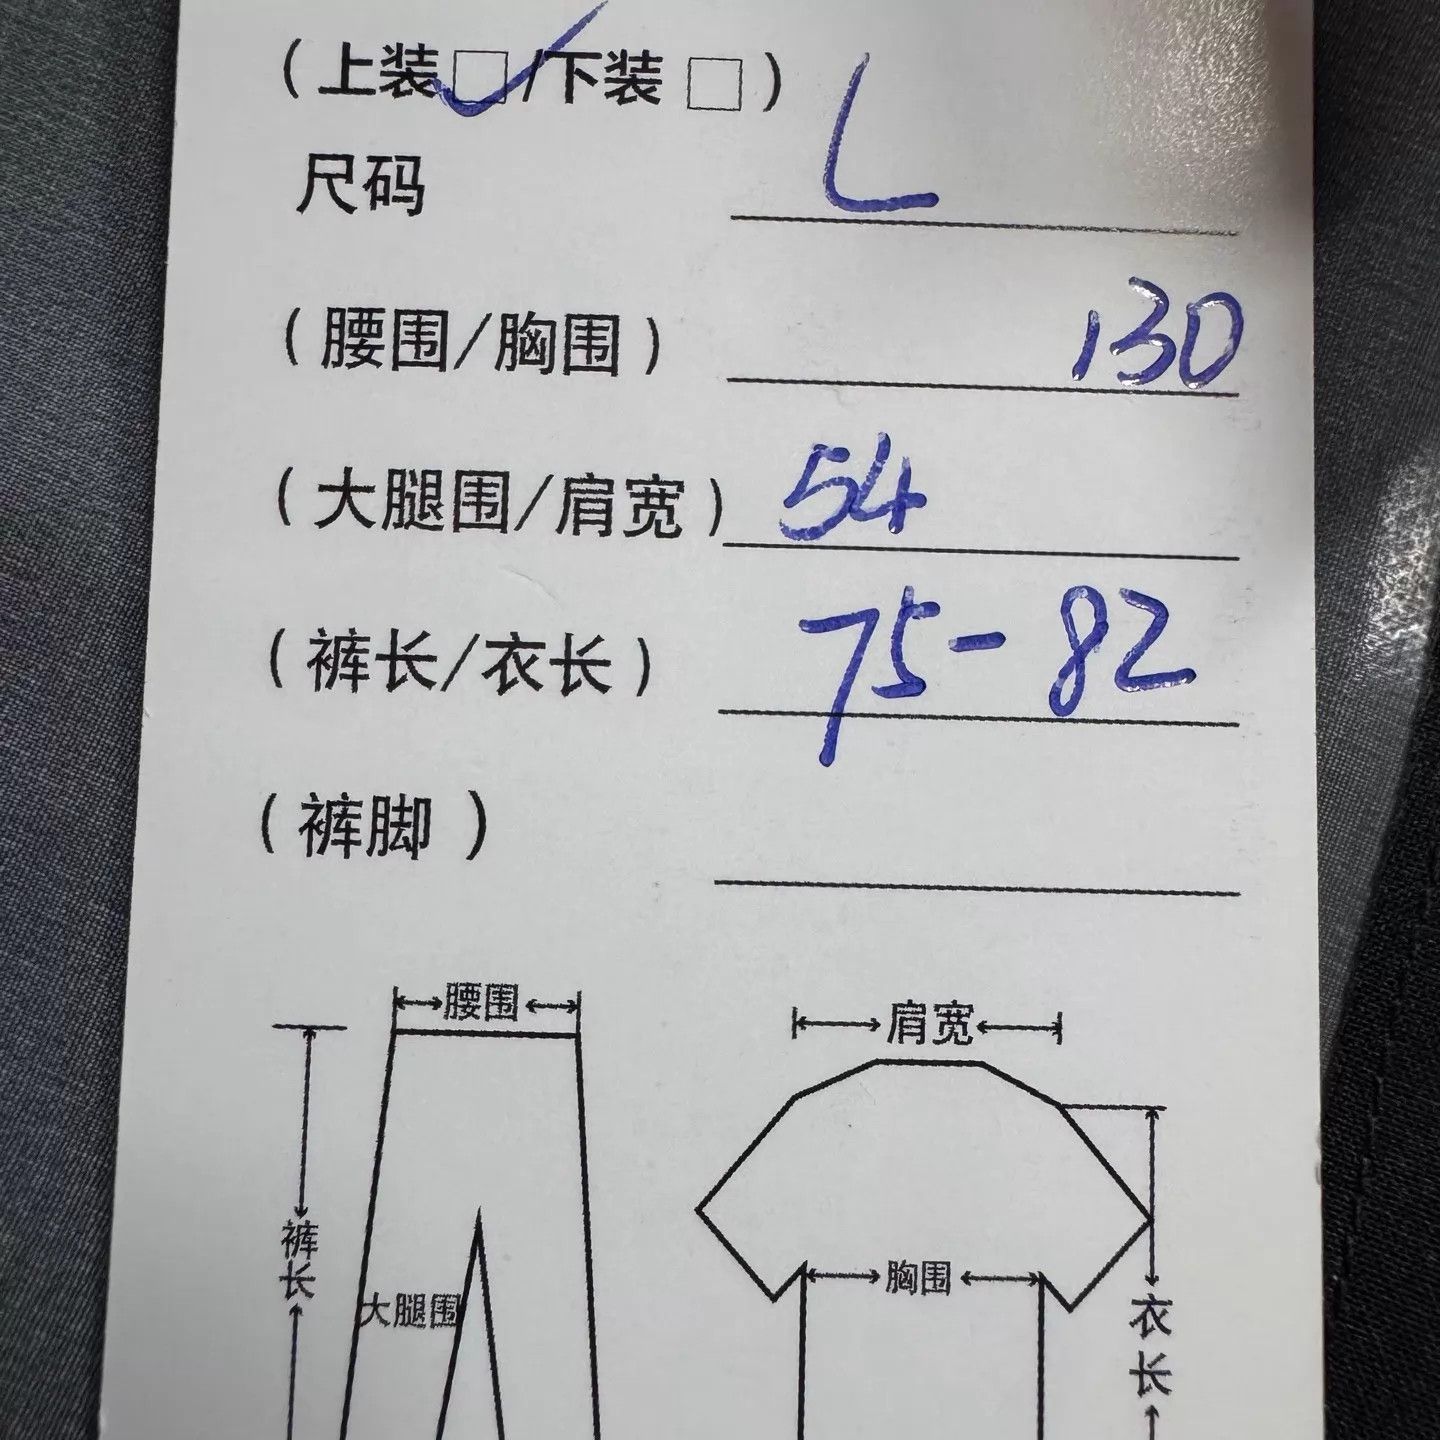 （上装□/下装□）
尺码 L
（腰围/胸围） 130
（大腿围/肩宽） 54
（裤长/衣长） 75-82
（裤脚 ）
腰围
肩宽
裤长
大腿围
胸围
衣长